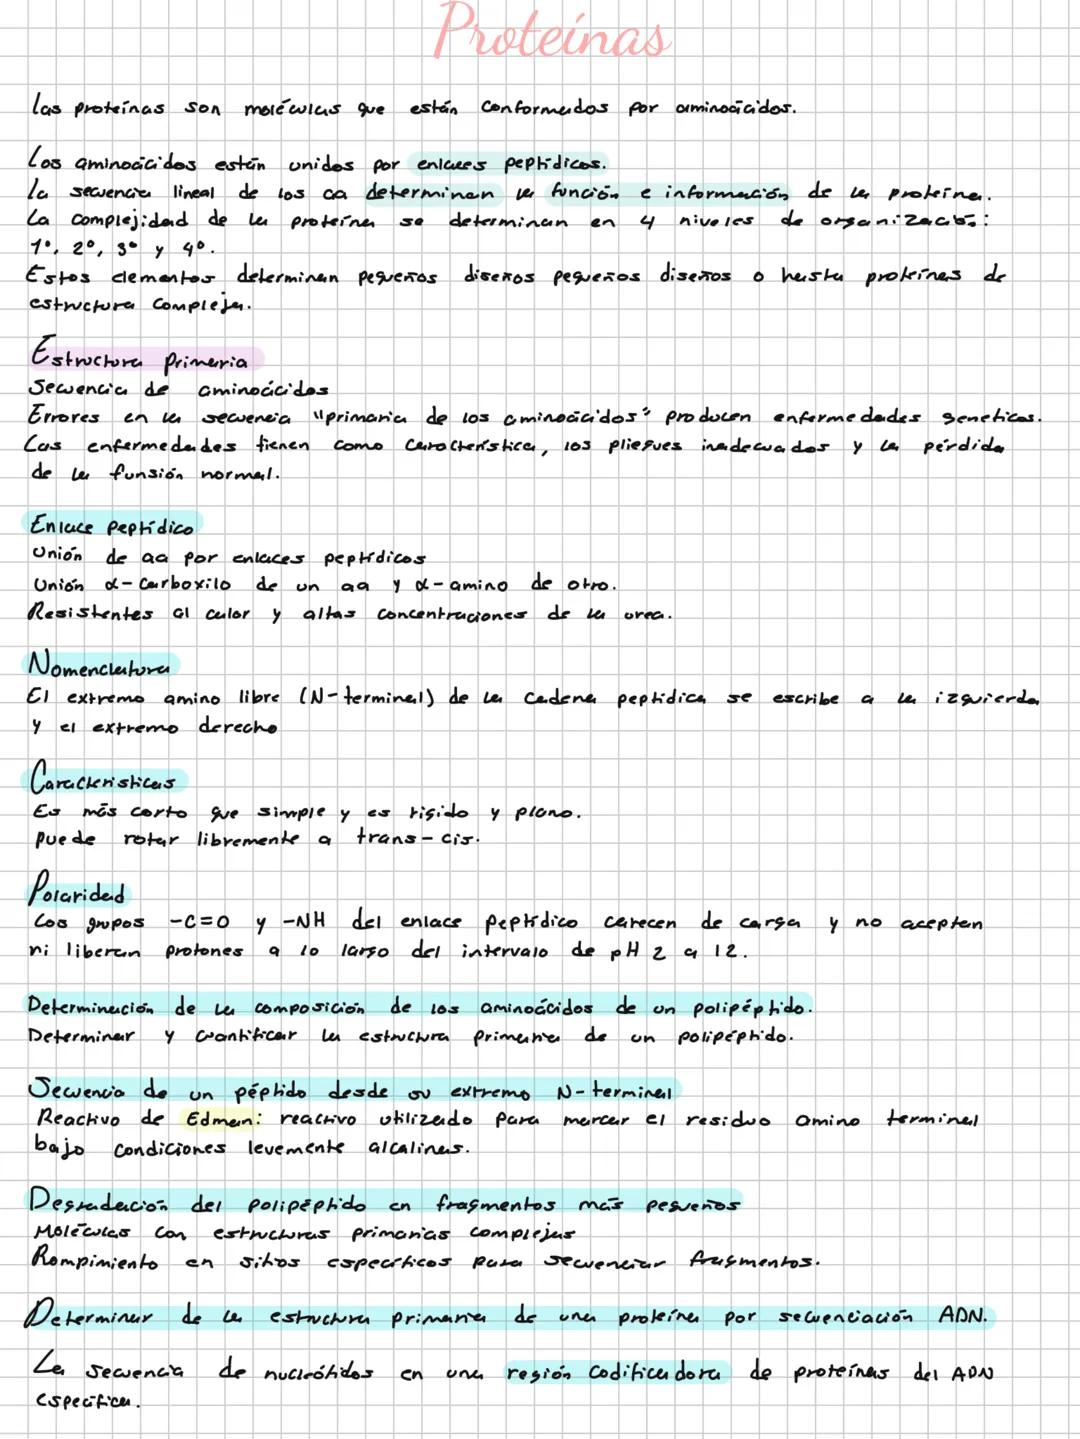 Proteínas
Las proteínas son moléculas que están conformadas por aminoácidos.
Los aminoácidos están unidos por enlaces peptídicos.
La secuencia lineal de los aa determinan la función e información de la proteína.
La complejidad de la proteína se determinan en 4 niveles de organización:
1º, 2º, 3º y 4º.
Estos elementos determinan pequeños diseños pequeños diseños o hasta proteínas de
estructura compleja.
Estructura primaria
Secuencia de aminoácidos
Errores en la secuencia "primaria de los aminoácidos" producen enfermedades geneticas.
Las enfermedades tienen como característica, los pliegues inadecuados y la pérdida
de la funsión normal.
Enlace peptídico
Unión de aa por enlaces peptídicos
Unión α-carboxilo de un aa y α-amino de otro.
Resistentes al calor y altas concentraciones de la urea.
Nomenclatura
El extremo amino libre (N-terminal) de la cadena peptídica se escribe a la izquierda
y el extremo derecho
Caracteristicas
Es más corto que simple y es rígido y plano.
Puede rotar libremente a trans-cis.
Polaridad
Los grupos -C=O y -NH del enlace peptídico carecen de carga y no aceptan
ni liberan protones a lo largo del intervalo de pH 2 a 12.
Determinación de la composición de los aminoácidos de un polipéptido.
Determinar y cuantificar la estructura primaria de un polipéptido.
Secuencia de un péptido desde su extremo N-terminal
Reactivo de Edman: reactivo utilizado para marcar el residuo amino terminal
bajo condiciones levemente alcalinas.
Degradación del polipéptido en fragmentos más pequeños
Moléculas con estructuras primarias complejas
Rompimiento en sitios específicos para secuenciar fragmentos.
Determinar de la estructura primaria de una proteína por secuenciación ADN.
La secuencia de nucleótidos en una región codificadora de proteínas del ADN
especifica.